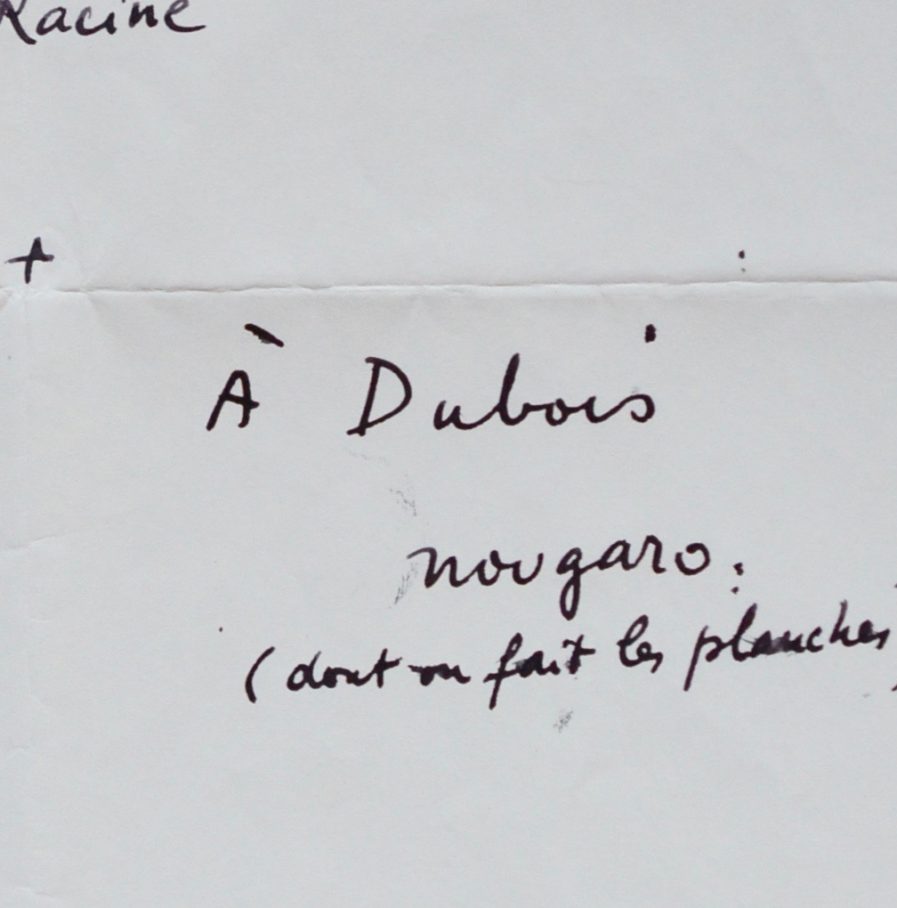 Racine
+
À Dubois
nougaro.
(dont on fait les planches)